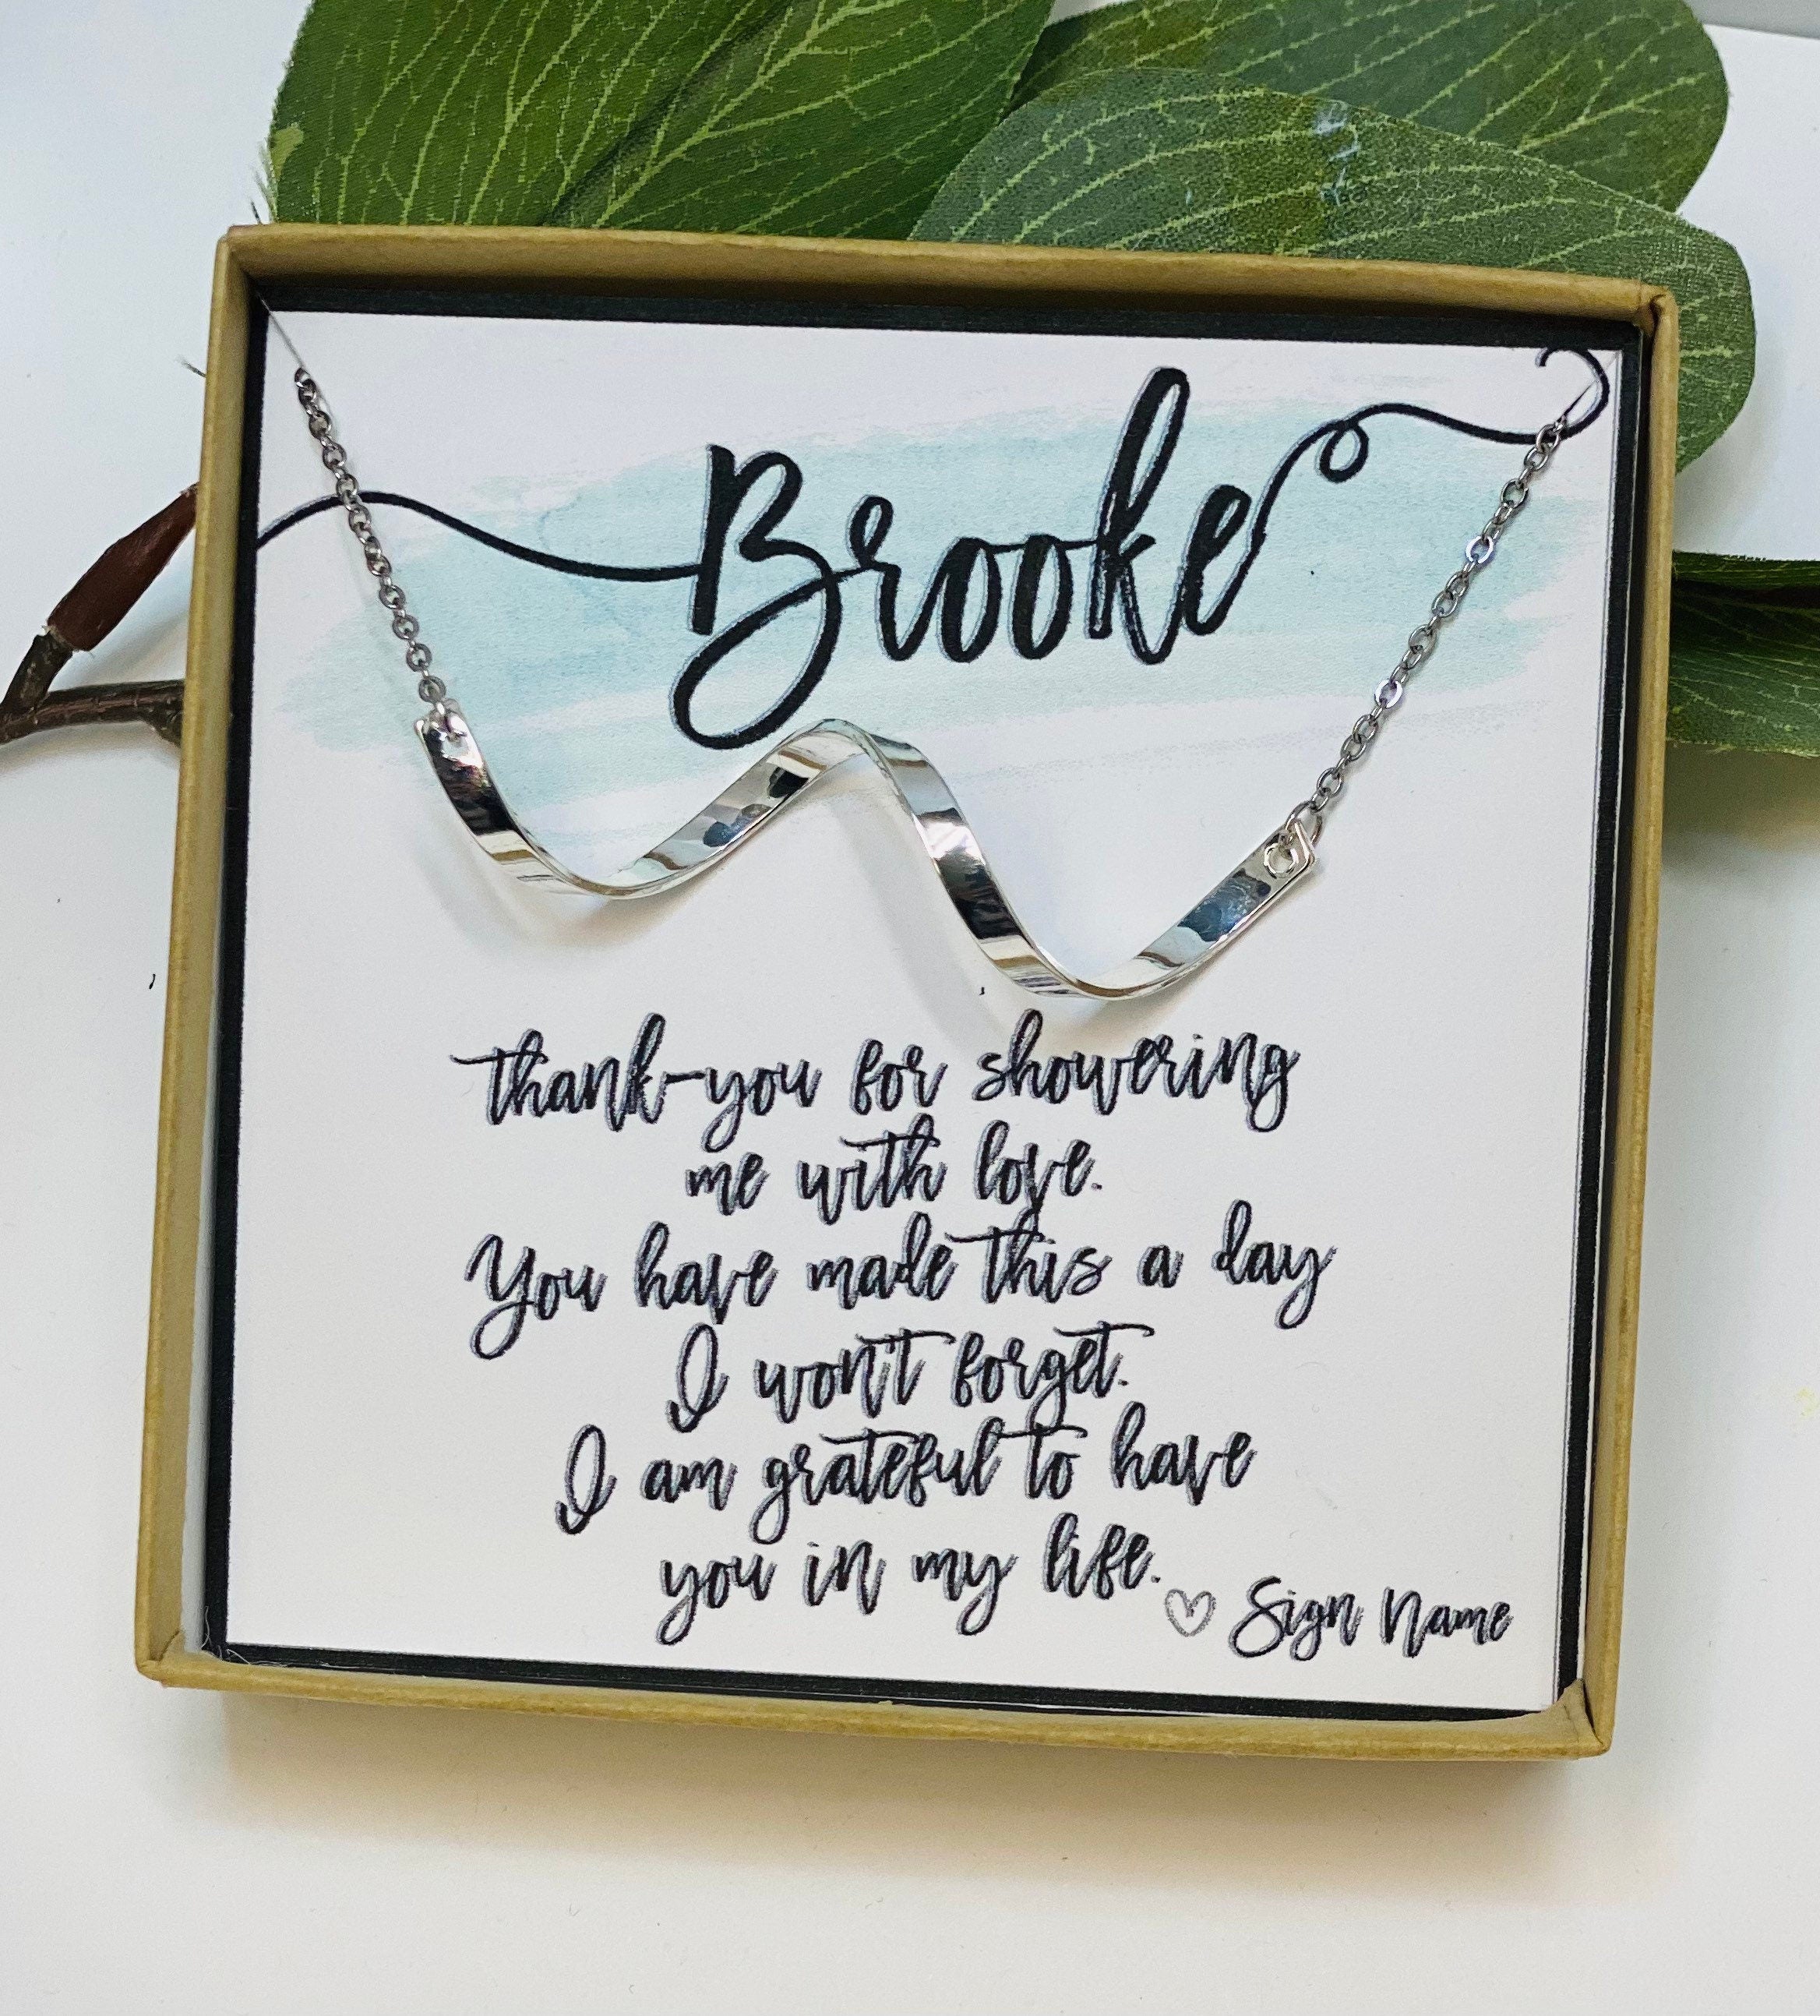 Brooke
thank-you for showering
me with love.
You have made this a day
I won't forget.
I am grateful to have
you in my life.
Sign Name